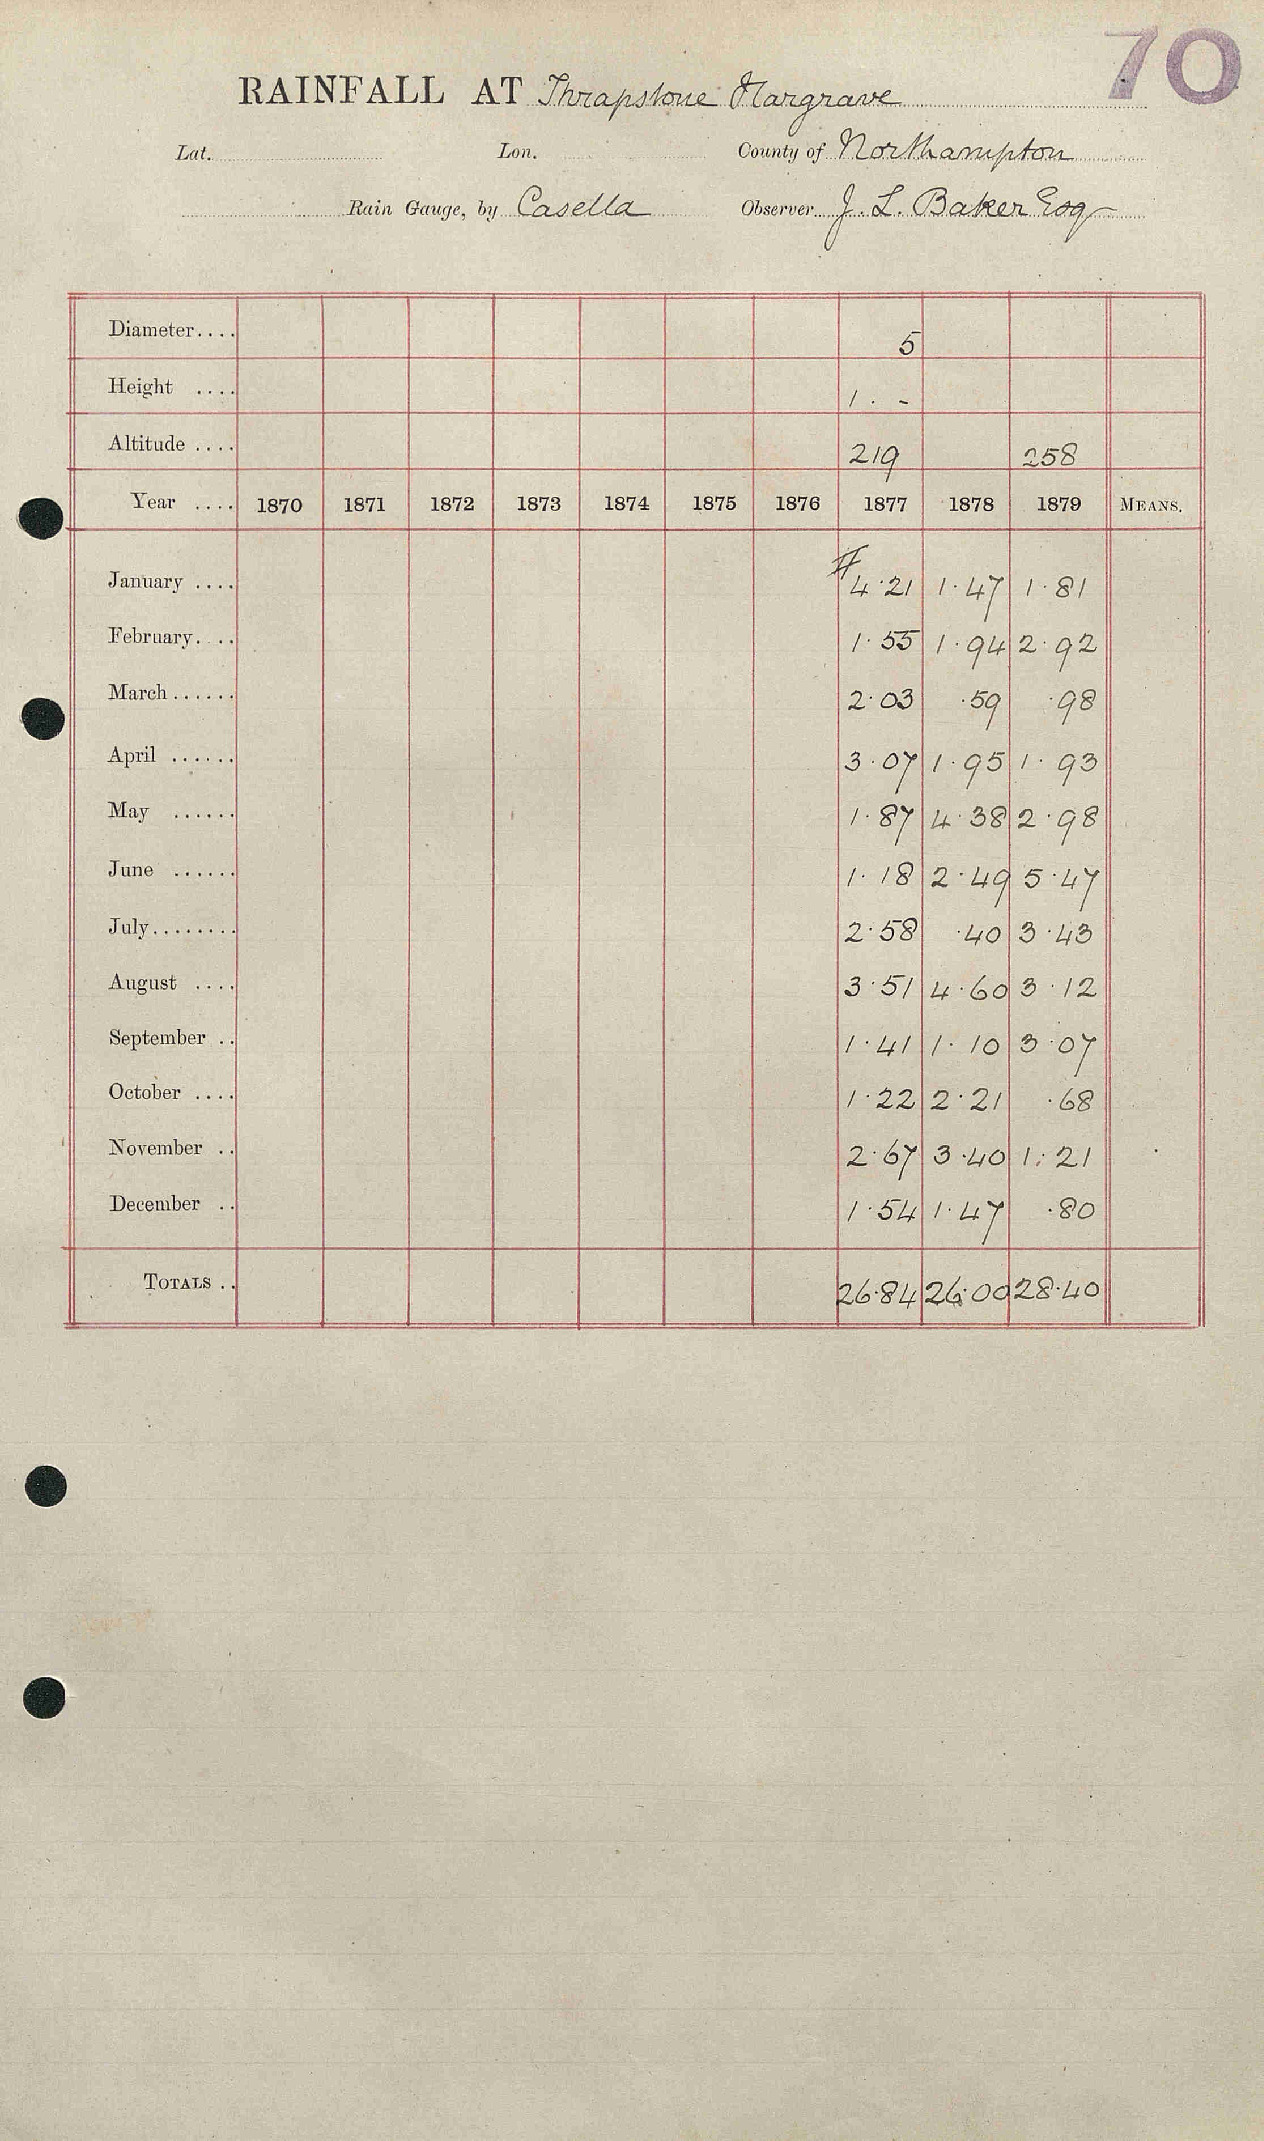 70
RAINFALL AT Thrapstone Hargrave
Lat. Lon. County of Northampton
Rain Gauge, by Casella Observer J. L. Baker Esq
Diameter.... 5
Height .... 1 . -
Altitude .... 219 258
Year .... 1870 1871 1872 1873 1874 1875 1876 1877 1878 1879 MEANS.
January .... # 4.21 1.47 1.81
February.... 1.55 1.94 2.92
March...... 2.03 .59 .98
April ...... 3.07 1.95 1.93
May ...... 1.87 4.38 2.98
June ...... 1.18 2.49 5.47
July........ 2.58 .40 3.43
August .... 3.51 4.60 3.12
September .. 1.41 1.10 3.07
October .... 1.22 2.21 .68
November .. 2.67 3.40 1.21
December .. 1.54 1.47 .80
TOTALS .. 26.84 26.00 28.40